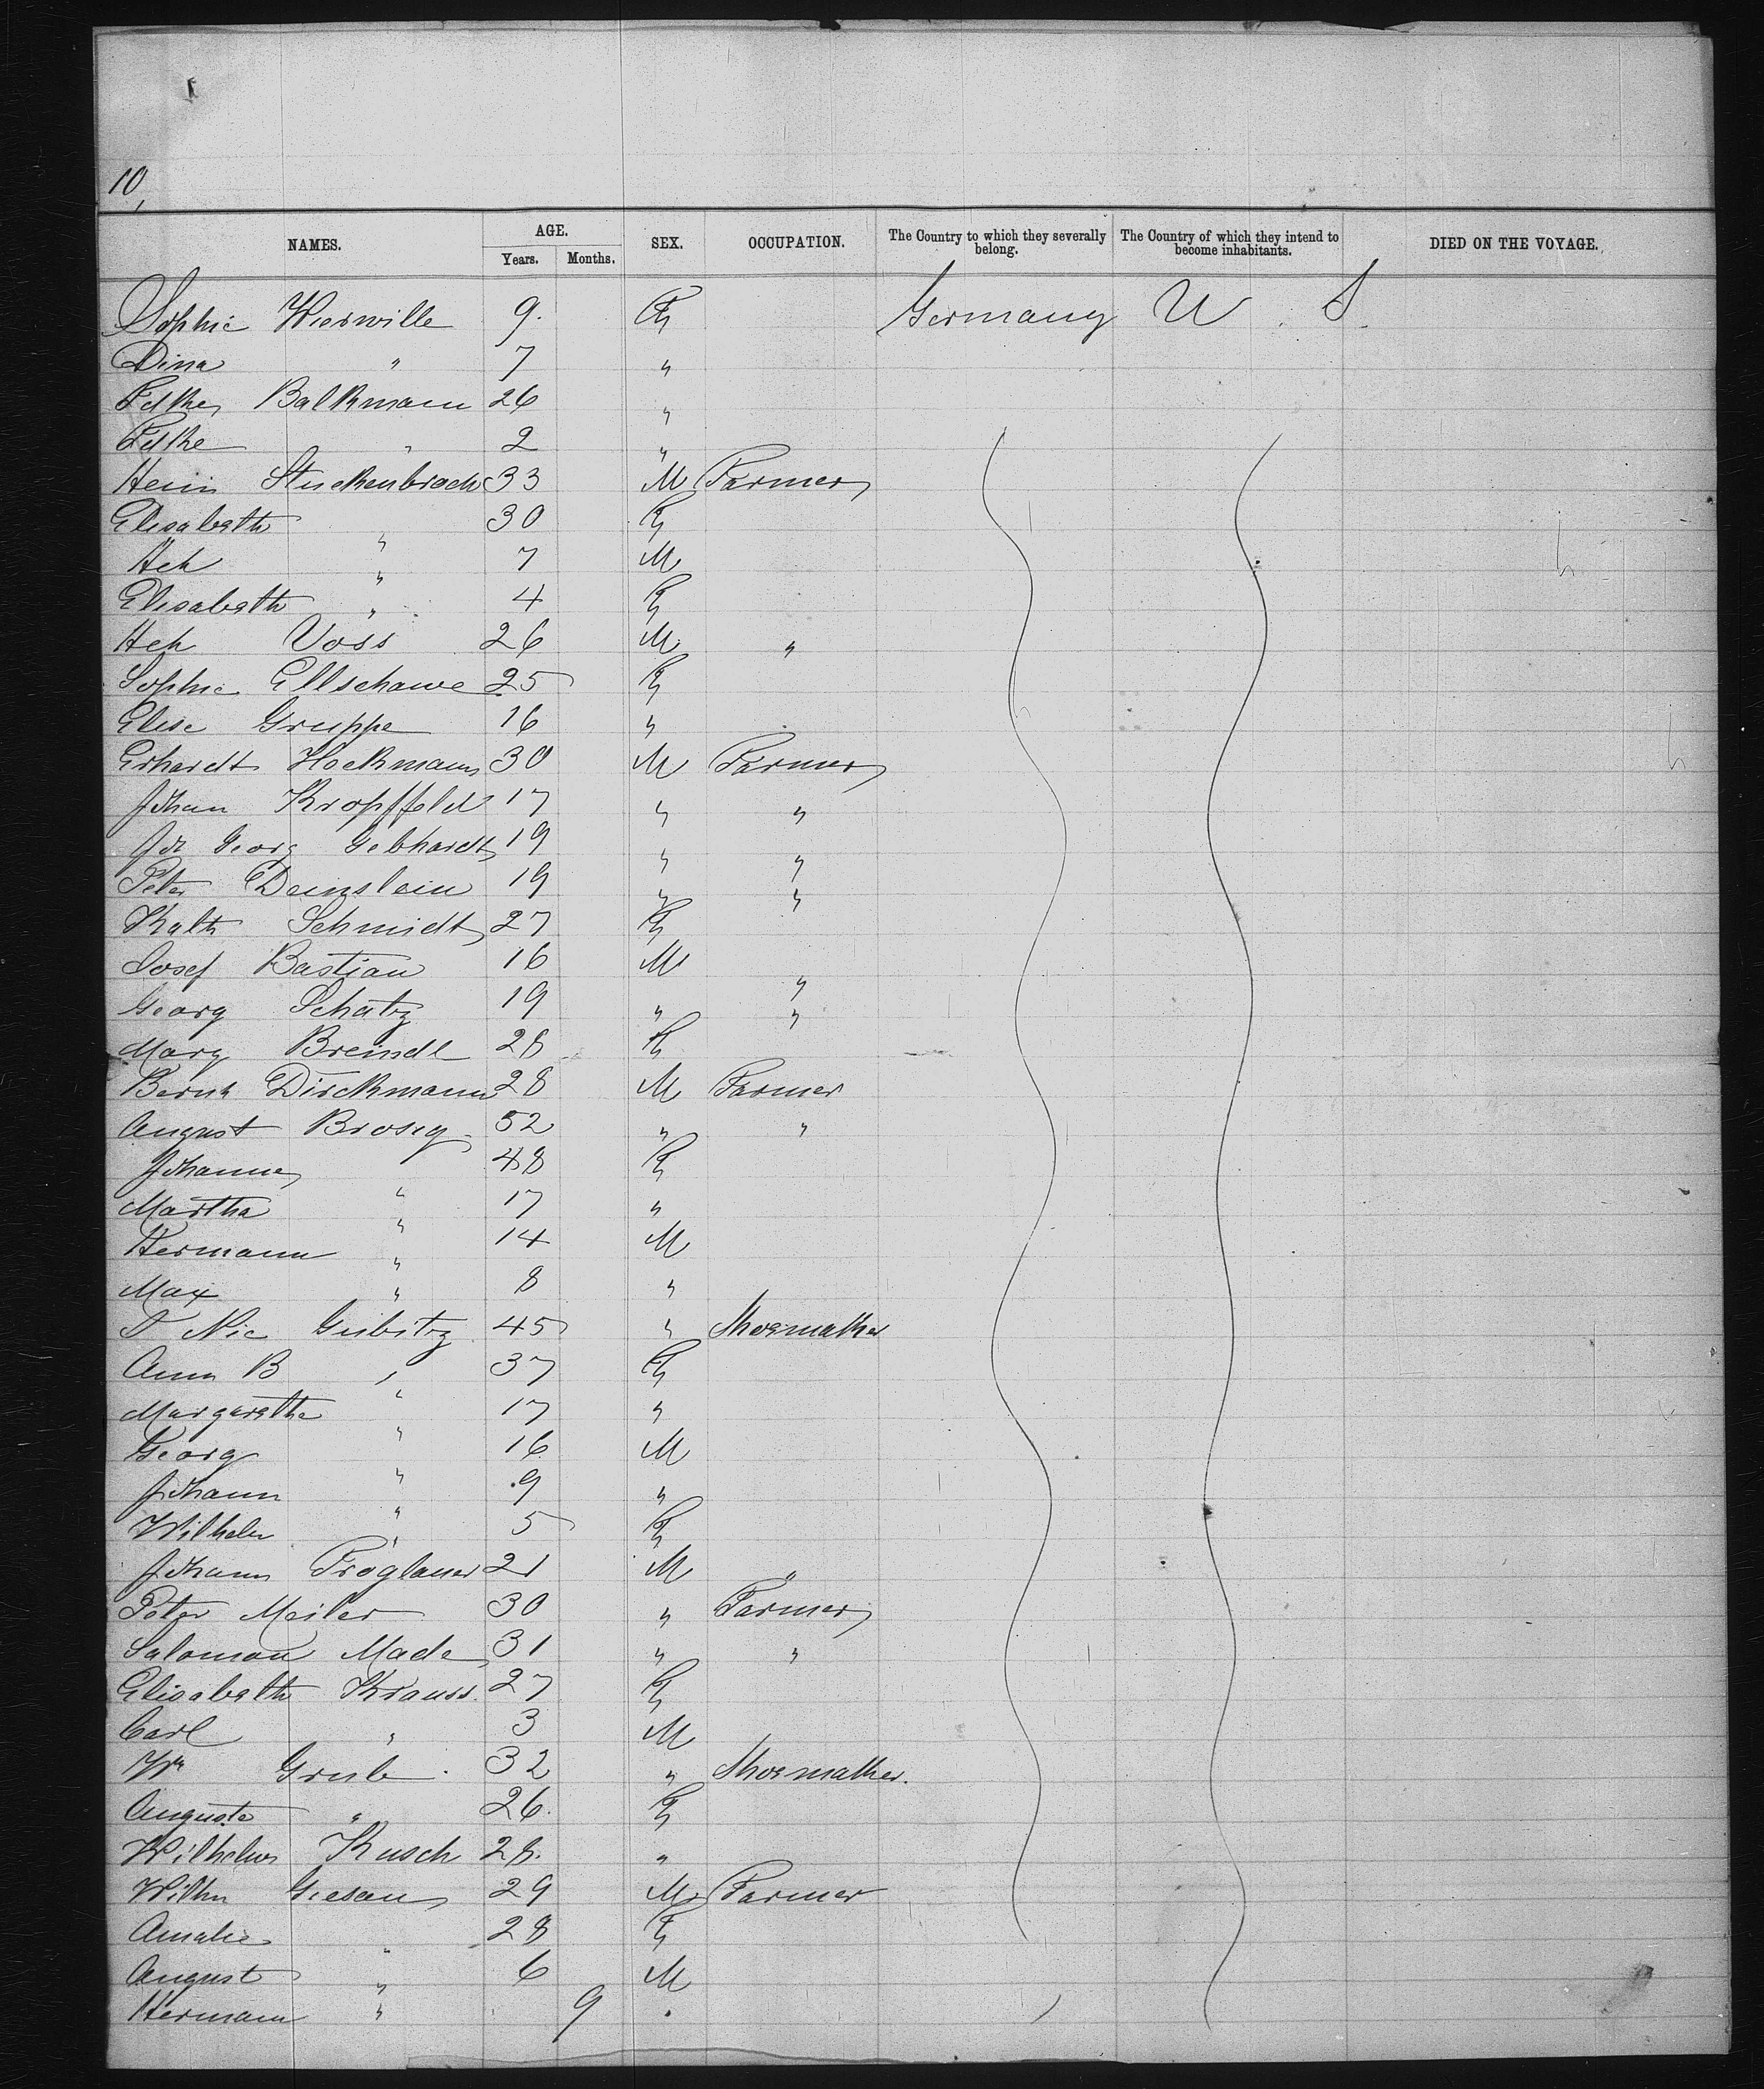 10,
NAMES. AGE. SEX. OCCUPATION. The Country to which they severally belong. The Country of which they intend to become inhabitants. DIED ON THE VOYAGE.
Years. Months.
Sophie Wierwille 9. F Germany U. S.
Dina " 7 "
Balkmann 26 "
" 2 "
Stuckenbrock 33 M Farmer
Elisabeth " 30 F
Hch " 7 M
Elisabeth " 4 F
Hch Voss 26 M "
Sophie Ellschawe 25 F
Elise Gruppe 16 "
Erhardt Hockmann 30 M Farmer
Johan Kropffeld 17 " "
Georg Gebhardt 19 " "
Peter Deinslein 19 " "
Kath Schmidt 27 F
Josef Bastian 16 M "
Georg Schatz 19 " "
Marg Breindl 28 F
Bernh Dirckmann 28 M Farmer
August Brosig 52 " "
Johanne " 48 F
Martha " 17 "
Hermann " 14 M
Max " 8 "
Nic Gubitz 45 " Shoemaker
Ann B " 37 F
Margarethe " 17 "
Georg " 16 M
Johann " 9 "
Wilhelm " 5 F
Johann Tröglauer 21 M "
Peter Meiler 30 " Farmer
Salomon Made 31 " "
Elisabeth Krauss. 27 F
Carl " 3 M
Wm Grub 32 " Shoemaker.
Auguste " 26. F
Wilhelm Kusch 28. "
Wilhn Giesau 29 M Farmer
Amalie " 28 F
August " 6 M
Hermann " 9 "